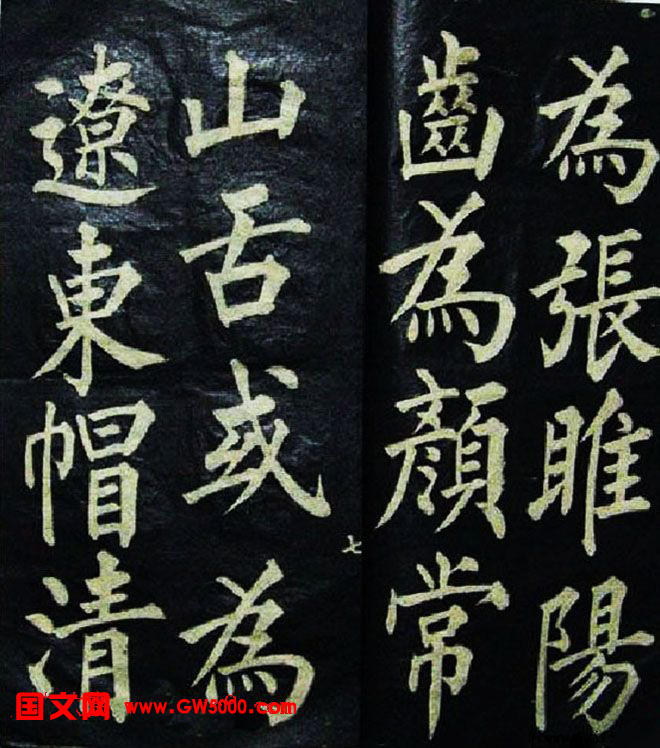 為張睢陽
齒為顏常
山舌或為
遼東帽清
七
国文网 www.GW5000.com